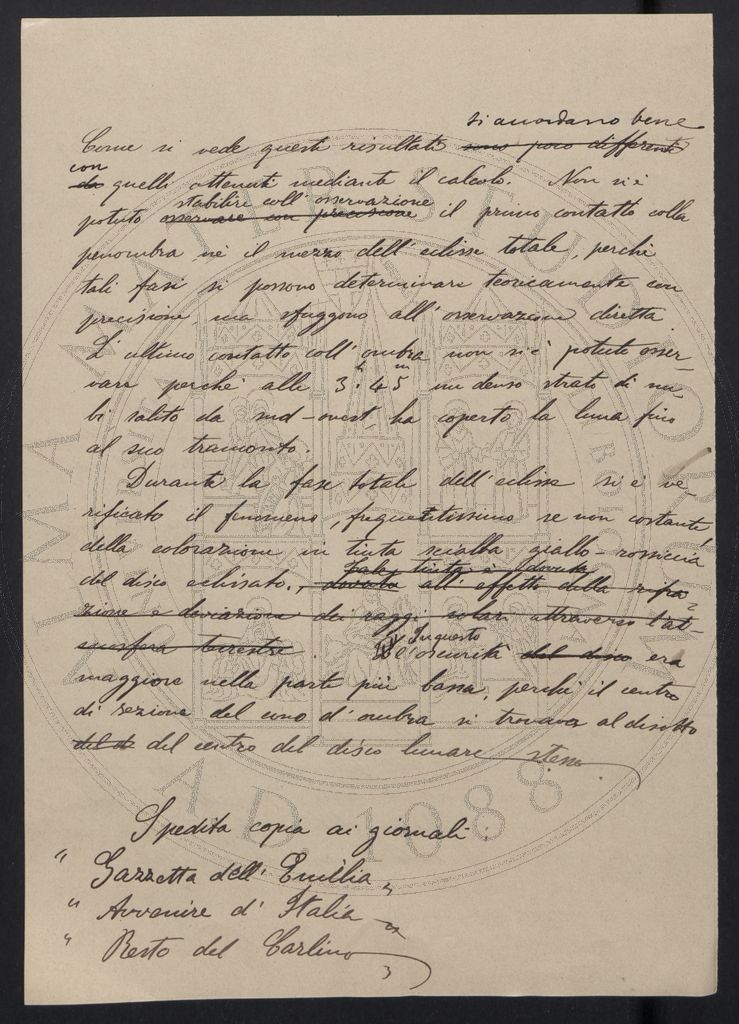 si accordano bene
Come si vede questi risultati sono poco differenti
con
da quelli ottenuti mediante il calcolo. Non si è
stabilire coll'osservazione
potuto osservare con precisione il primo contatto colla
penombra nè il mezzo dell'eclisse totale, perchè
tali fasi si possono determinare teoricamente con
precisione, ma sfuggono all'osservazione diretta.
L'ultimo contatto coll'ombra non si è potuto osser-
vare perchè alle 3h.45m un denso strato di nu-
bi salito da sud-ovest, ha coperto la luna fino
al suo tramonto.
Durante la fase totale dell'eclisse si è ve-
rificato il fenomeno, frequentissimo se non costante,
della colorazione in tinta scialba giallo-rossiccia
tale tinta è dovuta
del disco eclissato., dovuta all'effetto della rifra
zione e deviazione dei raggi solari attraverso l'at-
mosfera terrestre.
In questo
l'oscurità del disco era
maggiore nella parte più bassa, perchè il centro
di sezione del cono d'ombra si trovava al disotto
del del centro del disco lunare stesso.
Spedita copia ai giornali:
" Gazzetta dell'Emilia "
" Avvenire d'Italia "
" Resto del Carlino "
ALMA MATER STUDIORUM
A.D. 1088